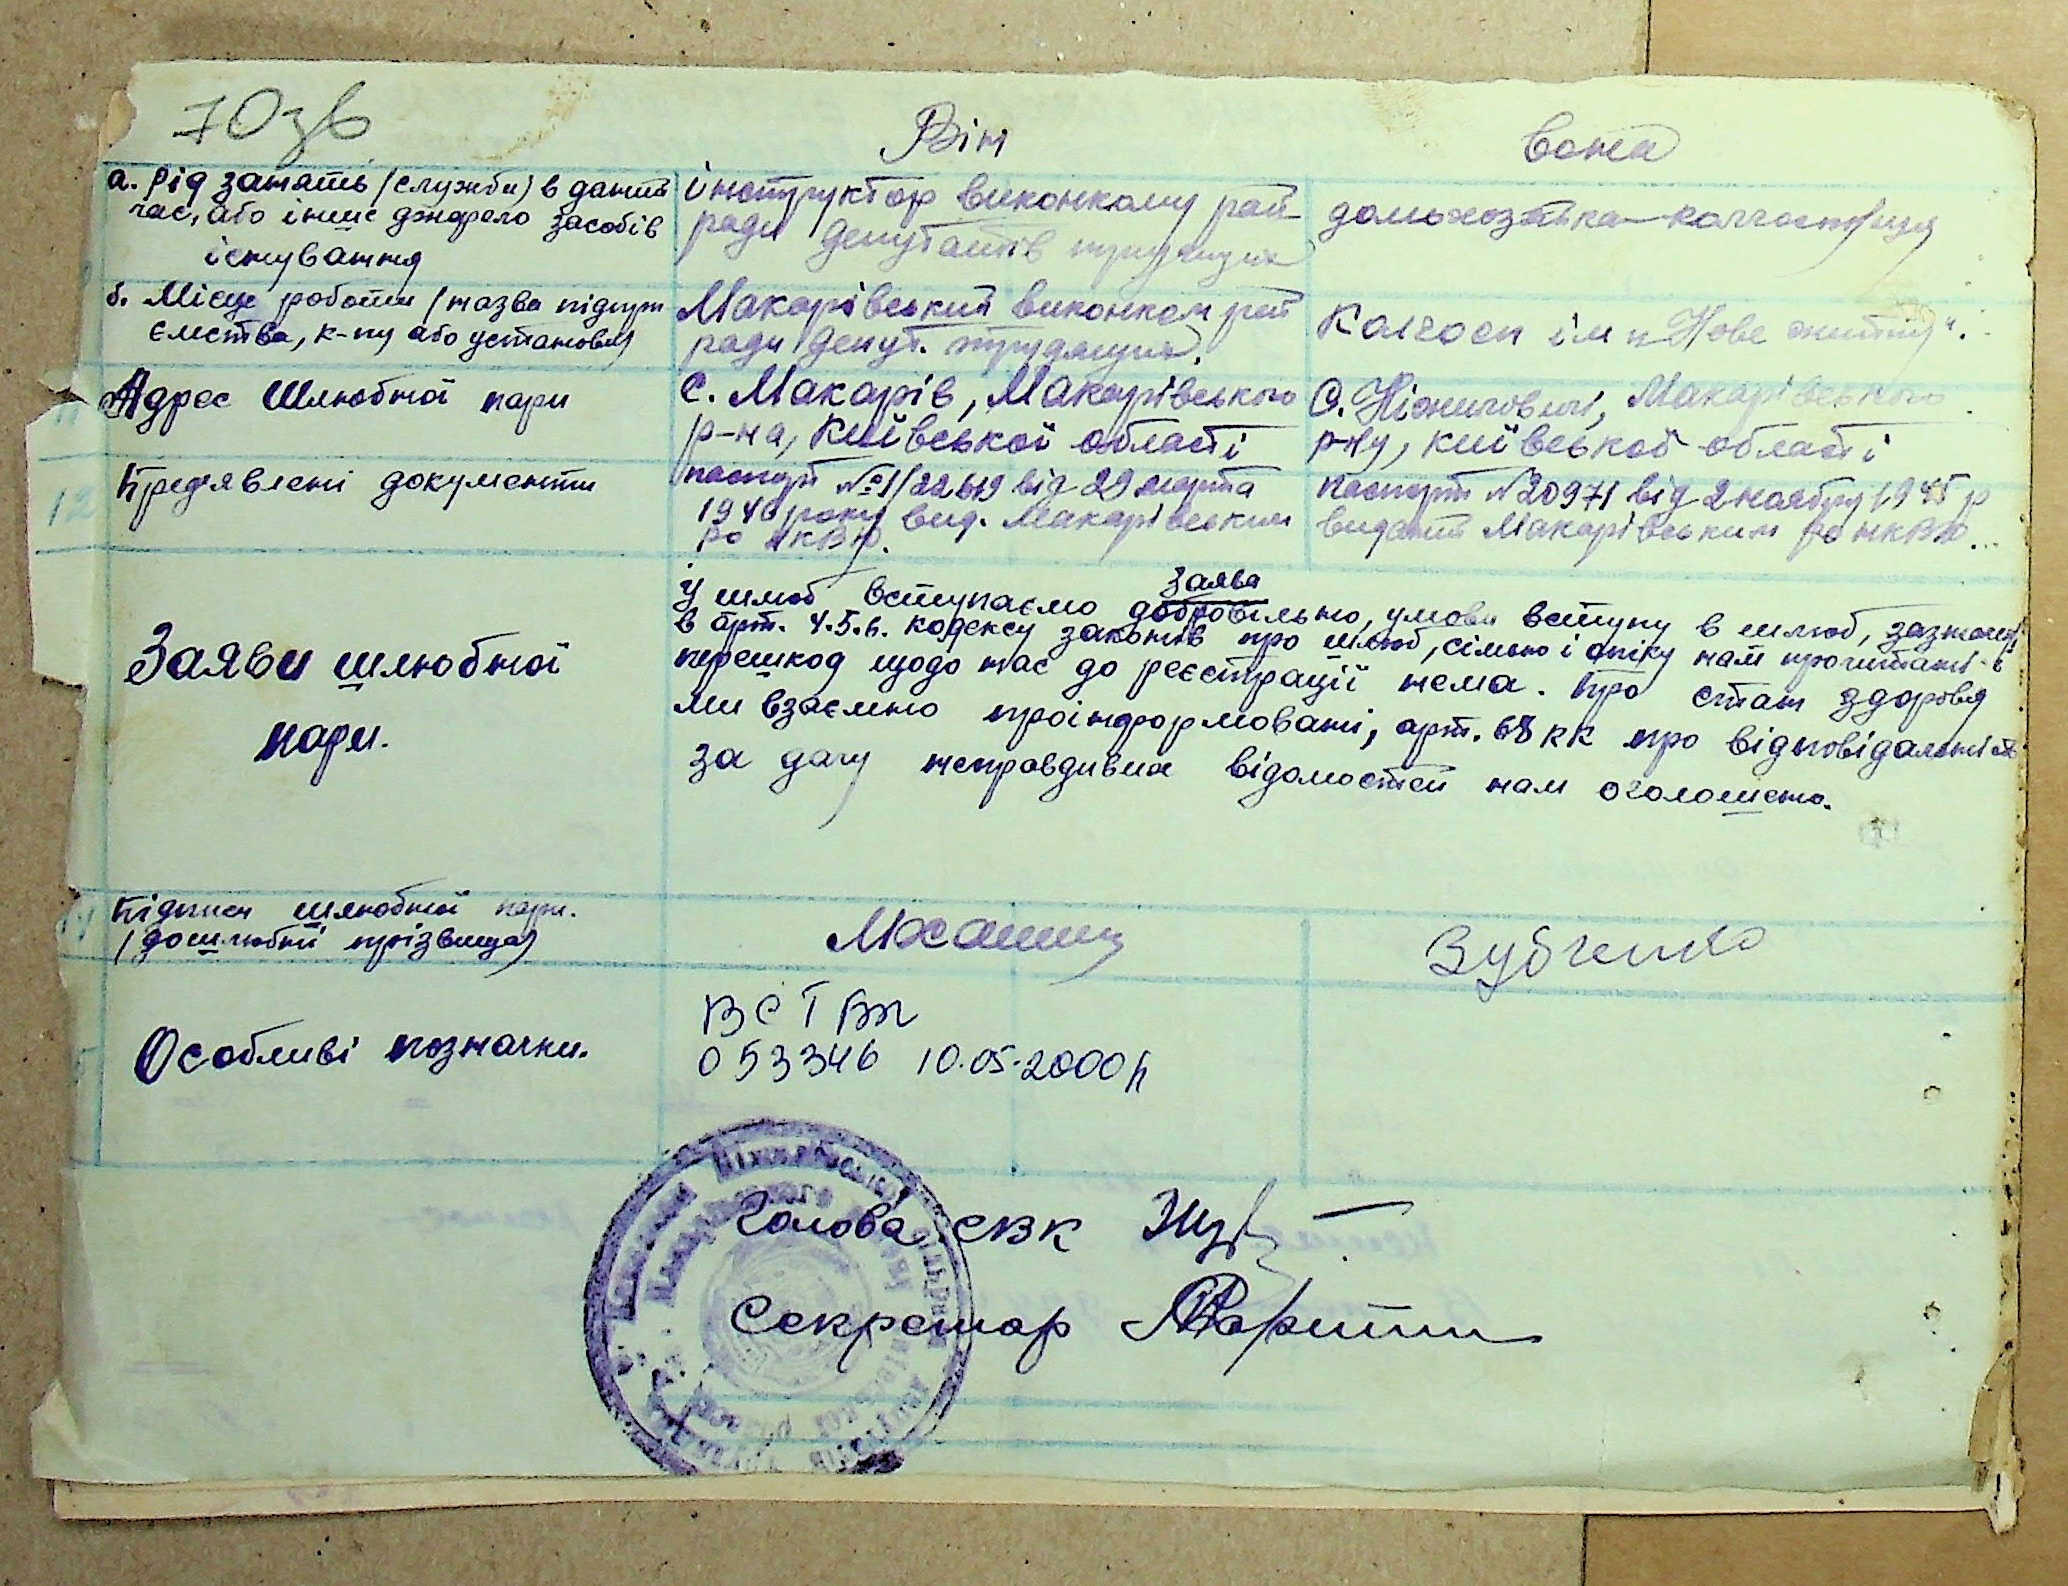 70зв
Він Вона
а. Рід занять (служби) в даний
час, або інше джерело засобів
існування
інструктор виконкому рай
ради депутатів трудящих
домохозяйка-колгоспниця
б. Місце роботи (назва підпри
ємства, к-пу або установи)
Макарівський виконком рай
ради депут. трудящих.
Колгосп ім "Нове життя".
11 Адрес шлюбної пари
С. Макарів, Макарівського
р-на, Київської області
С. Ніжиловичі, Макарівського
р-ну, Київської області
12 Предявлені документи
паспорт №
від 29 марта
1946 року вид. Макарівським
РО НКВД.
паспорт №20971 від 2 ноября 1945 р
виданий Макарівським РО НКВД
Заяви шлюбної
пари.
Заява
У шлюб вступаємо добровільно, умови вступу в шлюб, зазначені
в арт. 4.5.6. кодексу законів про шлюб, сімью і опіку нам прочитані
перешкод щодо нас до реєстрації нема. Про стан здоровя
ми взаємно проінформовані, арт. 68 КК про відповідальність
за дачу неправдивих відомостей нам оголошено.
14 Підписи шлюбної пари.
(дошлюбні прізвища)
Зубченко
Особливі позначки.
053346 10.05.2000р
Голова СВК
Секретар